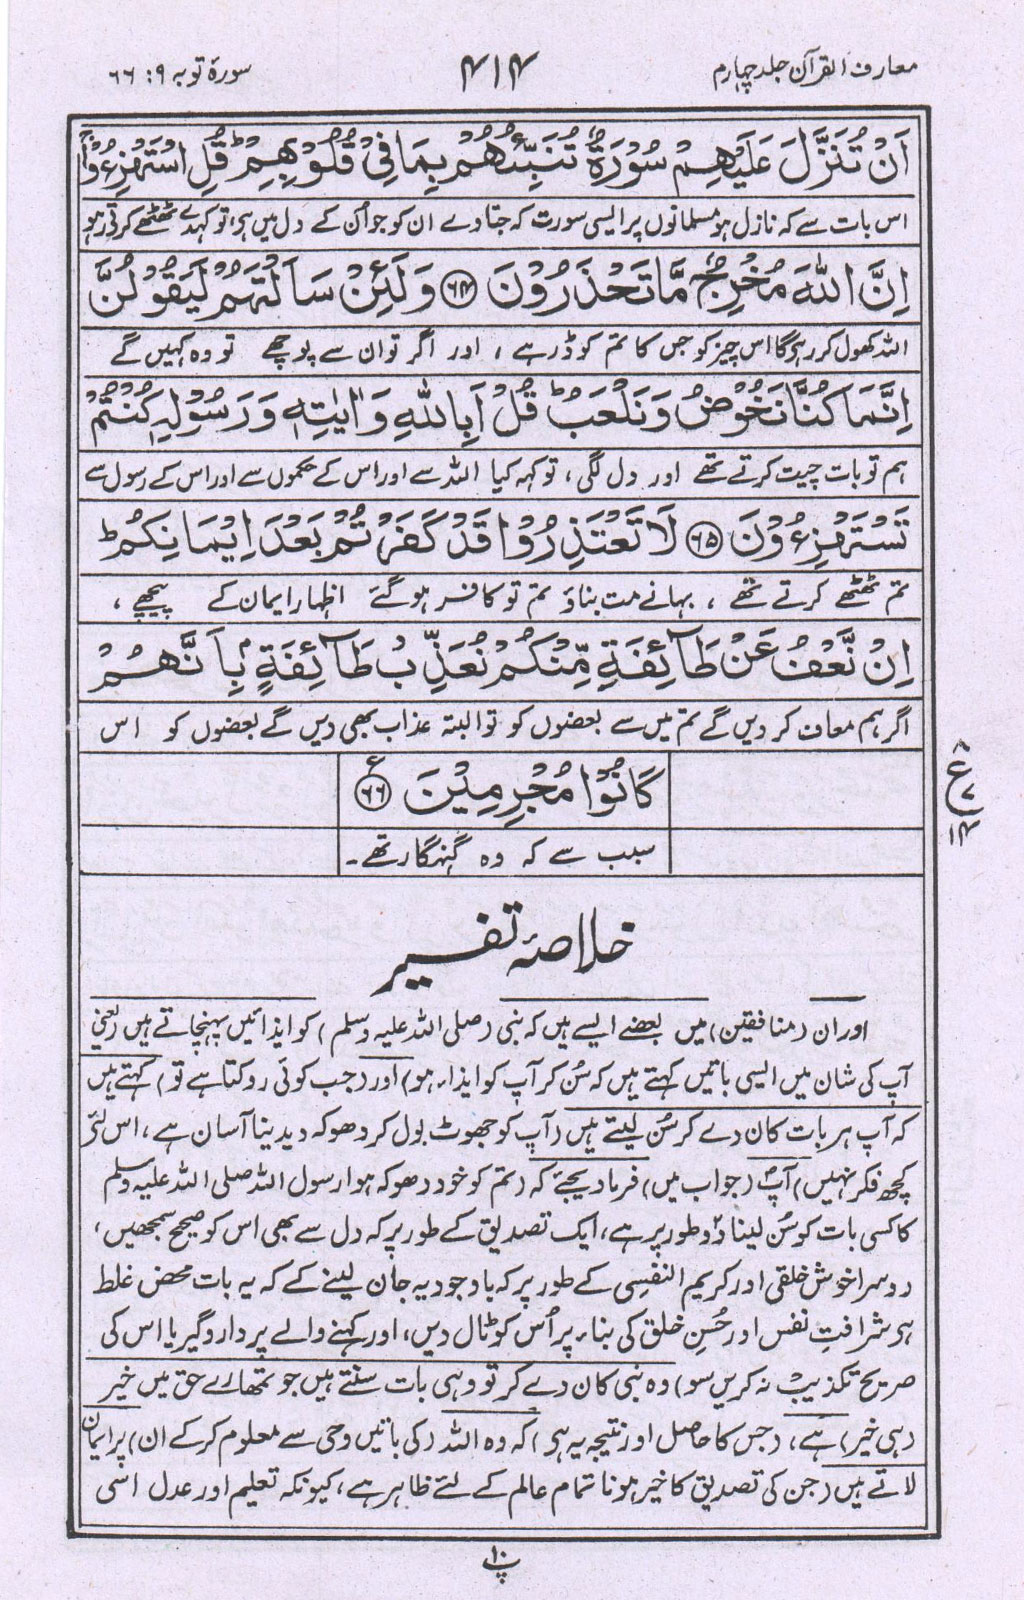 معارف القرآن جلد چہارم
۴۱۴
سورۂ توبہ ۹: ۶۶
اَنْ تُنَزَّلَ عَلَيْهِمْ سُوْرَةٌ تُنَبِّئُهُمْ بِمَا فِيْ قُلُوْبِهِمْ ؕ قُلِ اسْتَهْزِءُوْا ۚ
اس بات سے کہ نازل ہو مسلمانوں پر ایسی سورت کہ جتا دے ان کو جو اُن کے دل میں ہی، تو کہدے ٹھٹھے کرتے رہو
اِنَّ اللّٰهَ مُخْرِجٌ مَّا تَحْذَرُوْنَ ﴿۶۴﴾ وَلَئِنْ سَاَلْتَهُمْ لَيَقُوْلُنَّ
اللہ کھول کر رہی گا اس چیز کو جس کا تم کو ڈر ہے ، اور اگر تو ان سے پوچھے تو وہ کہیں گے
اِنَّمَا كُنَّا نَخُوْضُ وَنَلْعَبُ ؕ قُلْ اَبِاللّٰهِ وَاٰيٰتِهٖ وَرَسُوْلِهٖ كُنْتُمْ
ہم تو بات چیت کرتے تھے اور دل لگی ، تو کہہ کیا اللہ سے اور اس کے حکموں سے اور اس کے رسول سے
تَسْتَهْزِءُوْنَ ﴿۶۵﴾ لَا تَعْتَذِرُوْا قَدْ كَفَرْتُمْ بَعْدَ اِيْمَانِكُمْ ؕ
تم ٹھٹھے کرتے تھے ، بہانے مت بناؤ تم تو کافر ہو گئے اظہار ایمان کے پیچھے ،
اِنْ نَّعْفُ عَنْ طَآئِفَةٍ مِّنْكُمْ نُعَذِّبْ طَآئِفَةًۢ بِاَنَّهُمْ
اگر ہم معاف کر دیں گے تم میں سے بعضوں کو تو البتہ عذاب بھی دیں گے بعضوں کو اس
كَانُوْا مُجْرِمِيْنَ ﴿۶۶﴾ ع
سبب سے کہ وہ گنہگار تھے۔
۸
ع
۷
۱۴
خلاصۂ تفسیر
اور ان (منافقین) میں بعضے ایسے ہیں کہ نبی (صلی اللہ علیہ وسلم) کو ایذائیں پہنچاتے ہیں (یعنی
آپ کی شان میں ایسی باتیں کہتے ہیں کہ سُن کر آپ کو ایذاء ہو) اور (جب کوئی روکتا ہے تو) کہتے ہیں
کہ آپ ہر بات کان دے کر سُن لیتے ہیں (آپ کو جھوٹ بول کر دھوکہ دیدینا آسان ہے، اس لئے
کچھ فکر نہیں) آپ (جواب میں) فرما دیجئے کہ (تم کو خود دھوکہ ہوا رسول اللہ صلی اللہ علیہ وسلم
کا کسی بات کو سُن لینا دو طور پر ہے، ایک تصدیق کے طور پر کہ دل سے بھی اس کو صحیح سمجھیں،
دوسرا خوش خلقی اور کریم النفسی کے طور پر کہ باوجود یہ جان لینے کے کہ یہ بات محض غلط
ہی شرافتِ نفس اور حُسنِ خلق کی بناء پر اُس کو ٹال دیں، اور کہنے والے پر دار و گیر یا اس کی
صریح تکذیب نہ کریں سو) وہ نبی کان دے کر تو وہی بات سنتے ہیں جو تمھارے حق میں خیر
(ہی خیر) ہے، (جس کا حاصل اور نتیجہ یہ ہی) کہ وہ اللہ (کی باتیں وحی سے معلوم کر کے ان) پر ایمان
لاتے ہیں (جن کی تصدیق کا خیر ہونا تمام عالم کے لئے ظاہر ہے، کیونکہ تعلیم اور عدل اسی
پ ۱۰